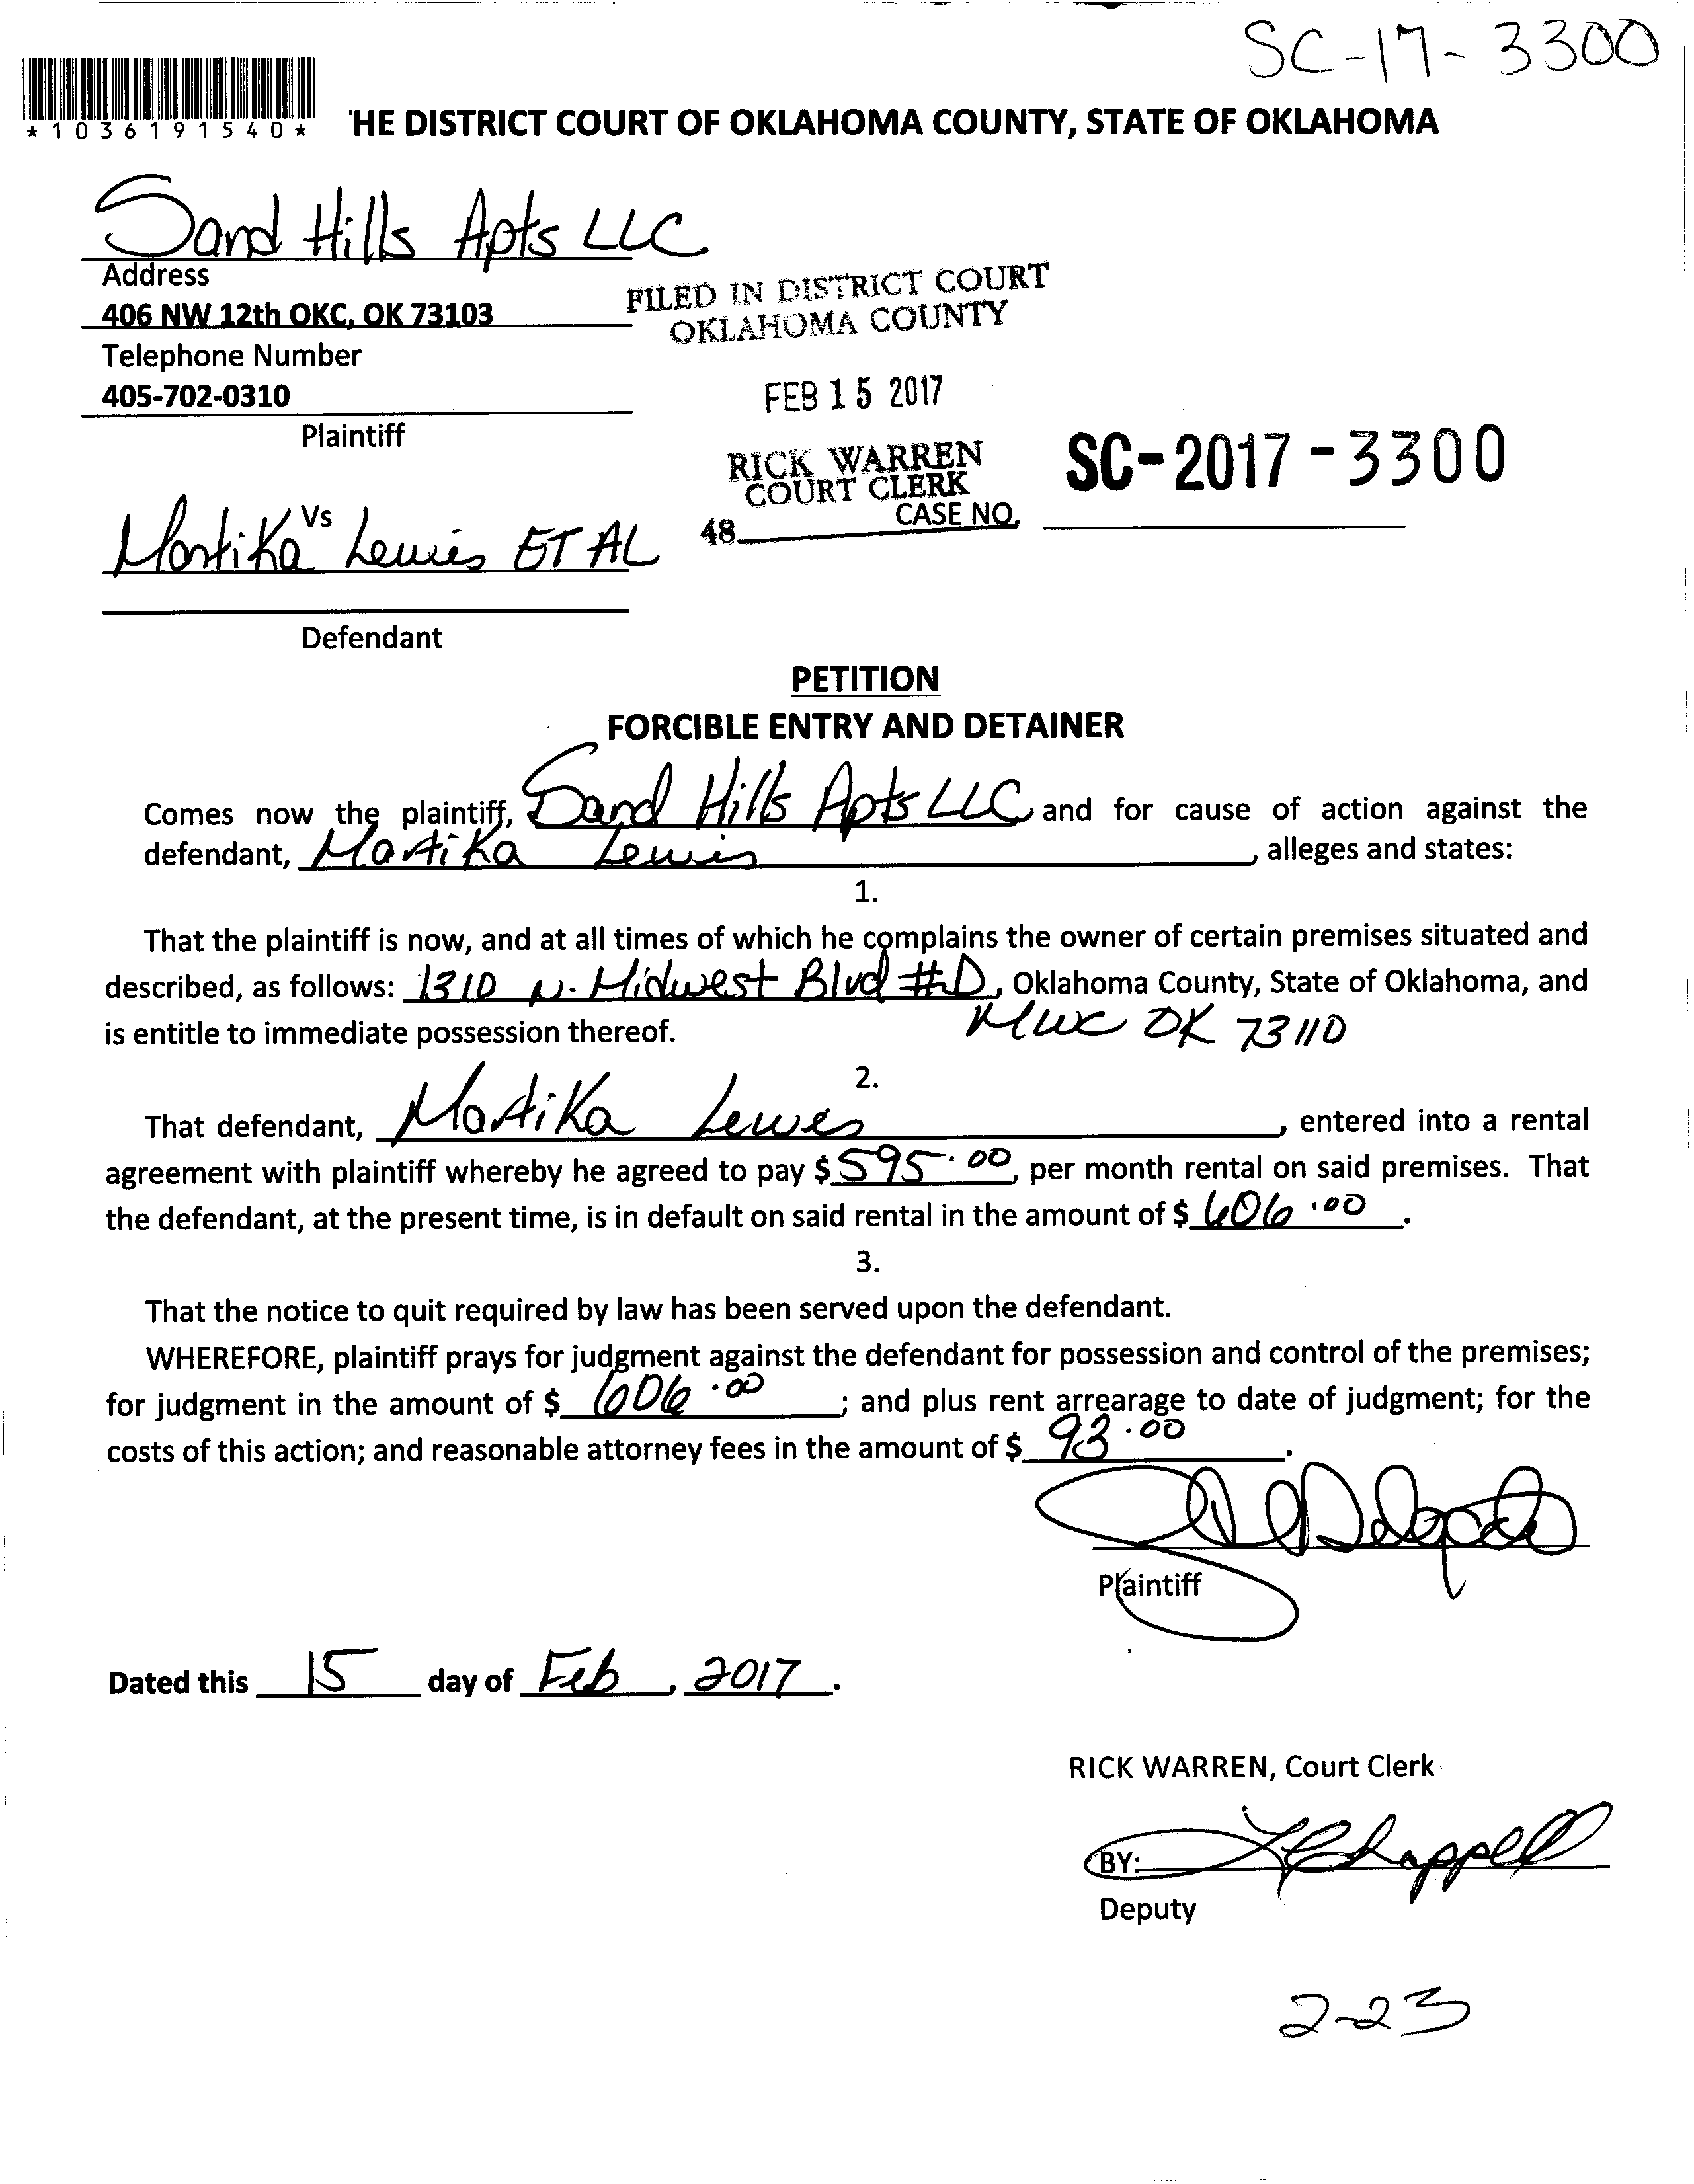 SC-17-3300
*1036191540*
'HE DISTRICT COURT OF OKLAHOMA COUNTY, STATE OF OKLAHOMA
Sand Hills Apts LLC
Address
406 NW 12th OKC, OK 73103
Telephone Number
405-702-0310
Plaintiff
FILED IN DISTRICT COURT
OKLAHOMA COUNTY
FEB 15 2017
RICK WARREN
COURT CLERK
48
CASE NO.
SC-2017-3300
Vs
Martika Lewis ET AL
Defendant
PETITION
FORCIBLE ENTRY AND DETAINER
Comes now the plaintiff, Sand Hills Apts LLC and for cause of action against the
defendant, Martika Lewis, alleges and states:
1.
That the plaintiff is now, and at all times of which he complains the owner of certain premises situated and
described, as follows: 1310 N. Midwest Blvd #D, Oklahoma County, State of Oklahoma, and
is entitle to immediate possession thereof. MWC OK 73110
2.
That defendant, Martika Lewis, entered into a rental
agreement with plaintiff whereby he agreed to pay $595.00, per month rental on said premises. That
the defendant, at the present time, is in default on said rental in the amount of $606.00.
3.
That the notice to quit required by law has been served upon the defendant.
WHEREFORE, plaintiff prays for judgment against the defendant for possession and control of the premises;
for judgment in the amount of $606.00; and plus rent arrearage to date of judgment; for the
costs of this action; and reasonable attorney fees in the amount of $93.00.
Plaintiff
Dated this 15 day of Feb, 2017.
RICK WARREN, Court Clerk
BY: Chappell
Deputy
2-23